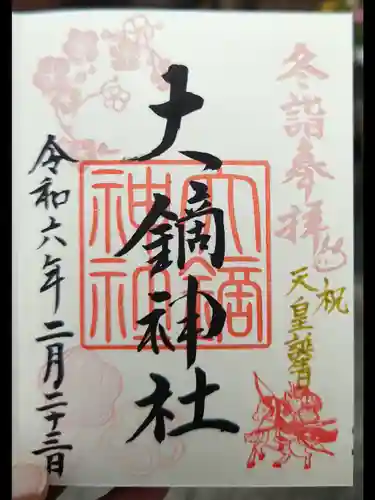 冬詣奉拝
祝
天皇誕生日
大鏑神社
大鏑神社
令和六年二月二十三日